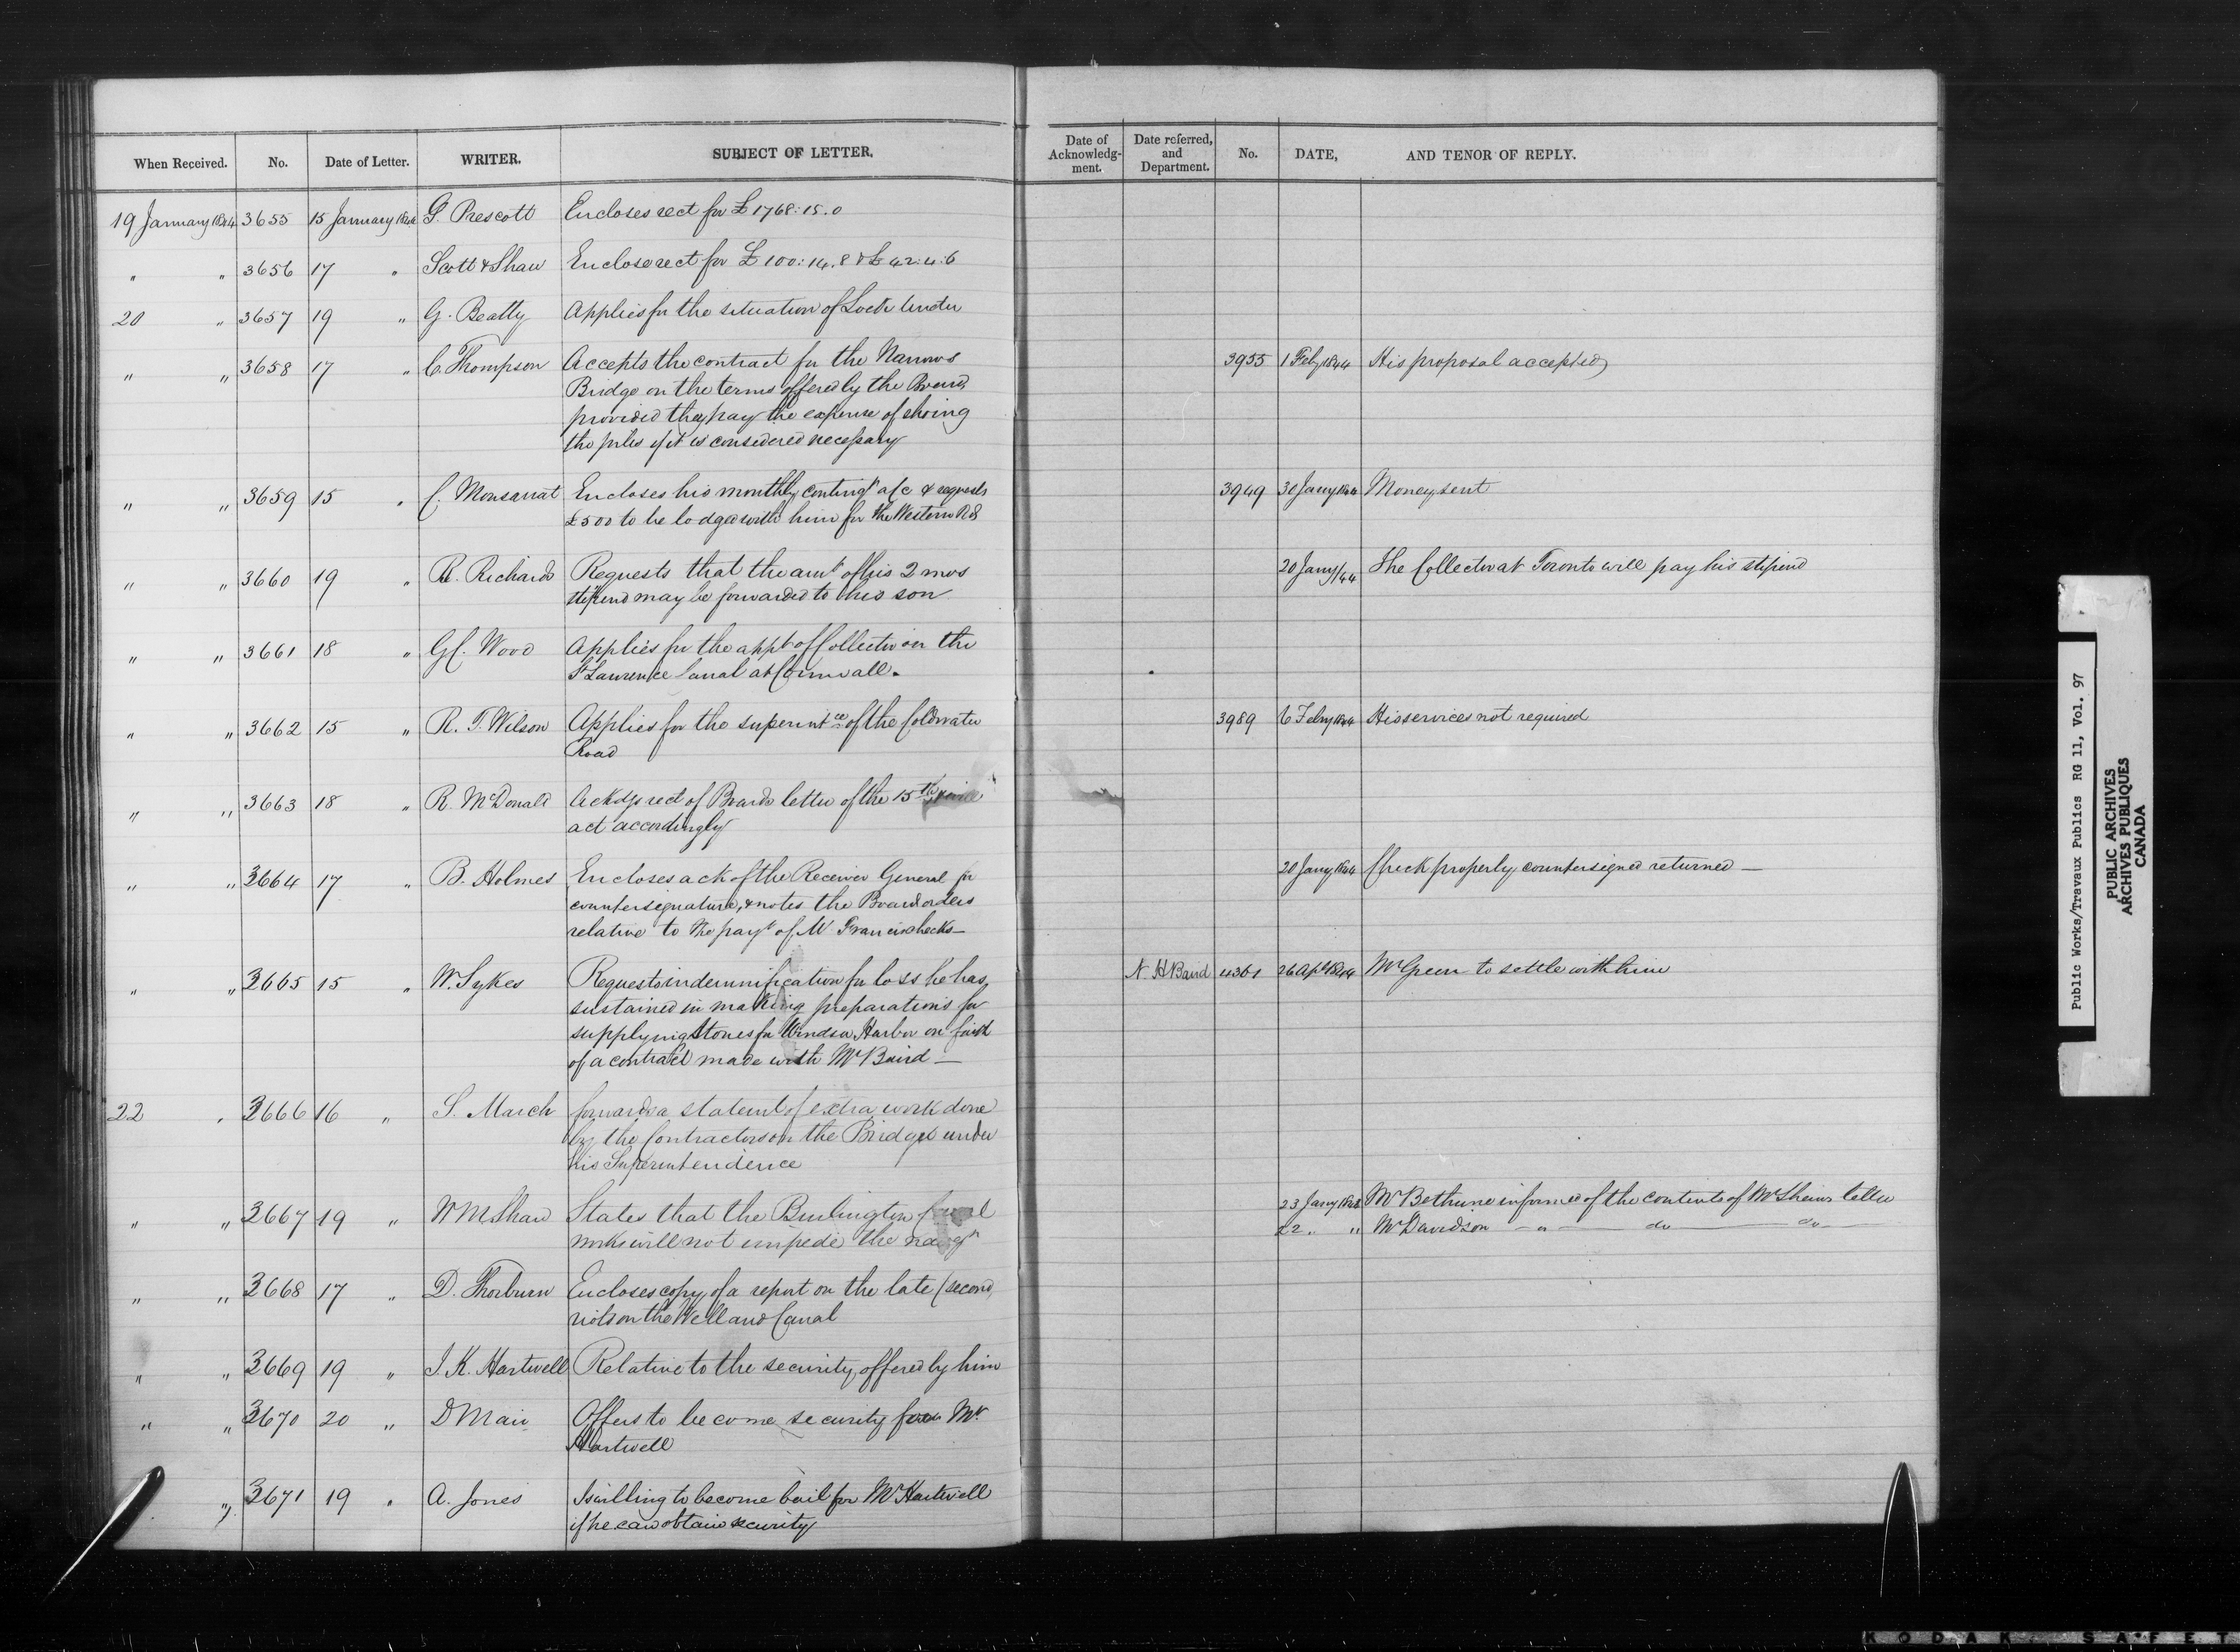 When Received. No. Date of Letter. WRITER. SUBJECT OF LETTER. Date of Acknowledg-ment. Date referred, and Department. No. DATE, AND TENOR OF REPLY.
19 January 1844 3655 15 January 1844 G. Prescott Encloses rect for £1768:15.0
" " 3656 17 " Scott & Shaw Enclose rect for £100:14.8 & £42:4:6
20 " 3657 19 " G. Beatty Applies for the situation of Lock tender
" " 3658 17 " C. Thompson Accepts the contract for the Narrows 3955 1 Feby 1844 His proposal accepted
Bridge on the terms offered by the Board
provided they pay the expense of shoing
the piles if it is considered necessary
" " 3659 15 " C. Monsarrat Encloses his monthly conting.t a/c & requests 3949 30 Jany 1844 Money sent
£500 to be lodged with him for the Western Rd
" " 3660 19 " R. Richards Requests that the amt of his 2 mos 20 Jany/44 The Collector at Toronto will pay his stipend
stipend may be forwarded to his son
" " 3661 18 " G C. Wood Applies for the appt of Collector on the
St Lawrence Canal at Cornwall.
" " 3662 15 " R. T. Wilson Applies for the superintce of the Coldwater 3989 6 Feby 1844 His services not required
Road
" " 3663 18 " R. McDonald Ackdgs rect of Boards letter of the 15th &
act accordingly
" " 3664 17 " B. Holmes Encloses a ck of the Receiver General for 20 Jany 1844 Check properly countersigned returned —
countersignature, & notes the Board orders
relative to the payt of Mr Francis checks —
" " 3665 15 " W. Sykes Requests indemnification for loss he has N H Baird 4361 26 Apl 1844 Mr Green to settle with him
sustained in making preparations for
supplying Stones for Windsor Harbor on faith
of a contract made with Mr Baird —
22 " 3666 16 " S. March forwards a statemt of extra work done
by the Contractors on the Bridges under
his Superintendence
" " 3667 19 " W M Shaw States that the Burlington Canal 23 Jany 1844 Mr Bethune informed of the contents of Mr Shaws letter
works will not impede the navign 22 " " Mr Davidson — " — do — do —
" " 3668 17 " D. Thorburn Encloses copy of a report on the late (second)
riots on the Welland Canal
" " 3669 19 " J. K. Hartwell Relative to the security offered by him
" " 3670 20 " D Mair Offers to become security for Mr.
Hartwell
" 3671 19 " A. Jones Is willing to become bail for Mr Hartwell
if he can obtain security
Public Works/Travaux Publics RG 11, Vol. 97
PUBLIC ARCHIVES
ARCHIVES PUBLIQUES
CANADA
KODAK SAFET